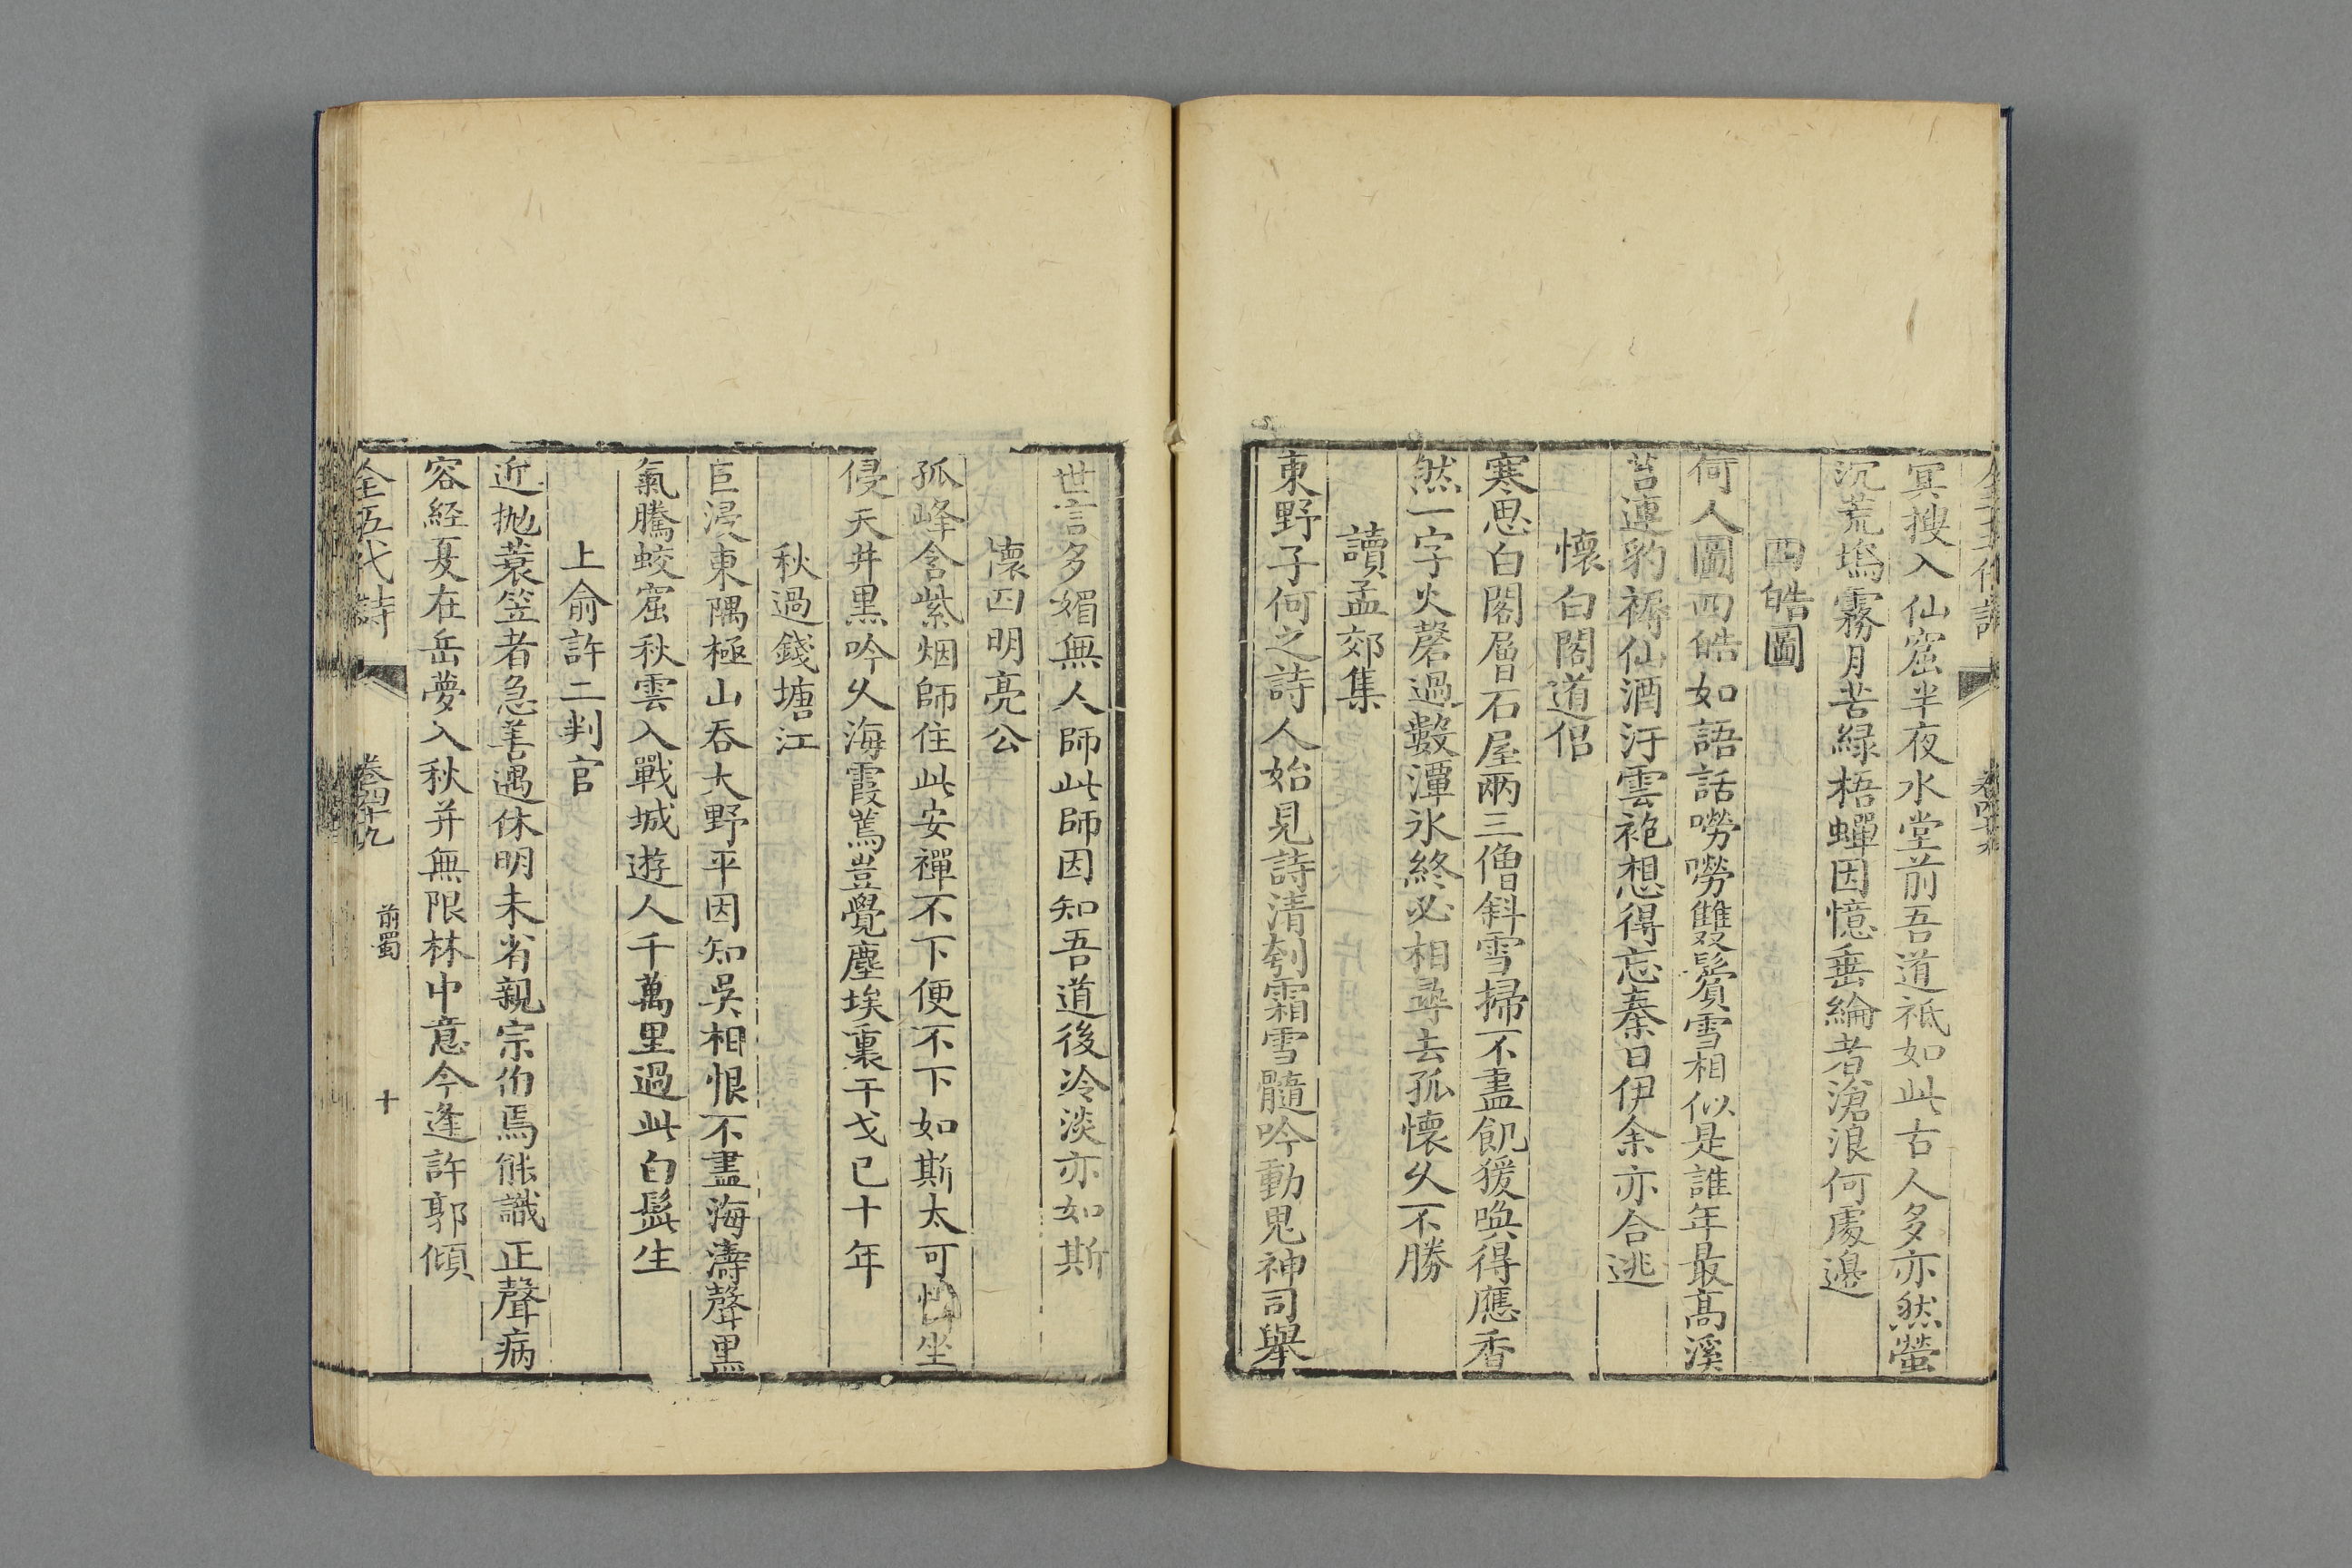 冥搜入仙窟半夜水堂前吾道祗如此古人多亦然螢
沉荒塢霧月苦緑梧蟬因憶垂綸者滄浪何處邊
四皓圖
何人圖四皓如語話嘮嘮雙鬢雪相似是誰年最高溪
苔連豹褥仙酒汙雲袍想得忘秦日伊余亦合逃
懷白閣道侶
寒思白閣層石屋兩三僧斜雪掃不盡飢猨喚得應香
然一字火磬過數潭氷終必相尋去孤懷久不勝
讀孟郊集
東野子何之詩人始見詩清刳霜雪髓吟動鬼神司舉
世言多媚無人師此師因知吾道後冷淡亦如斯
懷四明亮公
孤峰含紫烟師住此安禪不下便不下如斯太可憐坐
侵天井黒吟久海霞蔫豈覺塵埃裏干戈已十年
秋過錢塘江
巨浸東隅極山吞大野平因知吳相恨不盡海濤聲黒
氣騰蛟窟秋雲入戰城遊人千萬里過此白髭生
上俞許二判官
近抛蓑笠者急善遇休明未省親宗伯焉能識正聲病
容經夏在岳夢入秋并無限林中意今逢許郭傾
全五代詩 卷四十九 前蜀 十